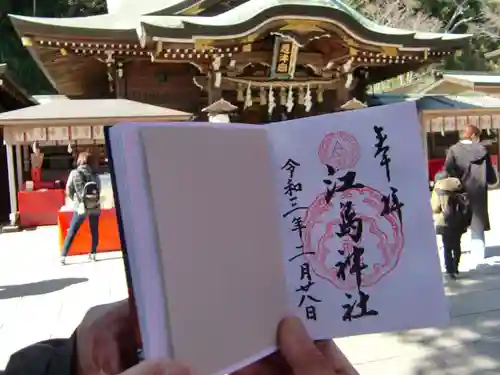 奉拝
江島神社
令和三年二月廿八日